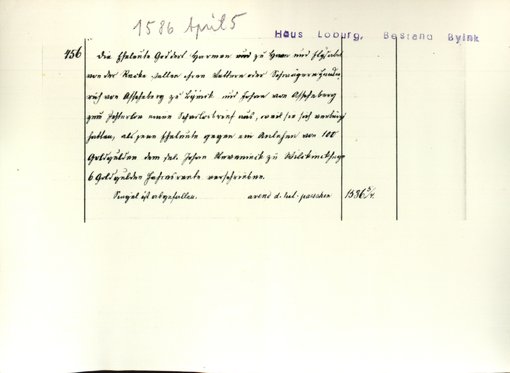 1586 April 5
Haus Loburg, Bestand Byink
456 Die Eheleute Goddert Harmen und zu Haen und Elsabet
von der Recke stellen ihren Vettern oder Schwägern Hein-
rich von Ascheberg zu Byinck und Johan von Ascheberg
zum einen Schadlosbrief aus, weil sie sich verbürgt
hatten, als jene Eheleute gegen ein Anlehen von 100
Goldgulden dem sel. Johan zu
6 Goldgulden Jahresrente verschrieben.
Siegel ist abgefallen. avend d. hel. paschen 1586 5/4.